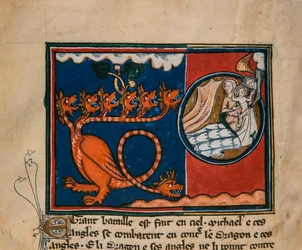 Grant bataille est fait en ciel. michael e ces
angles se combatent en contre le Dragon e ses
angles. E li Dragon e ses angles ne li point contre